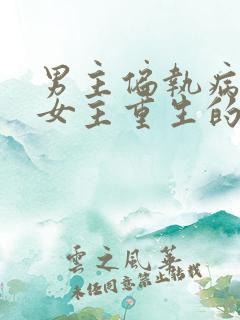 男主偏执病
女主重生的
雲之风华
未经同意禁止转载